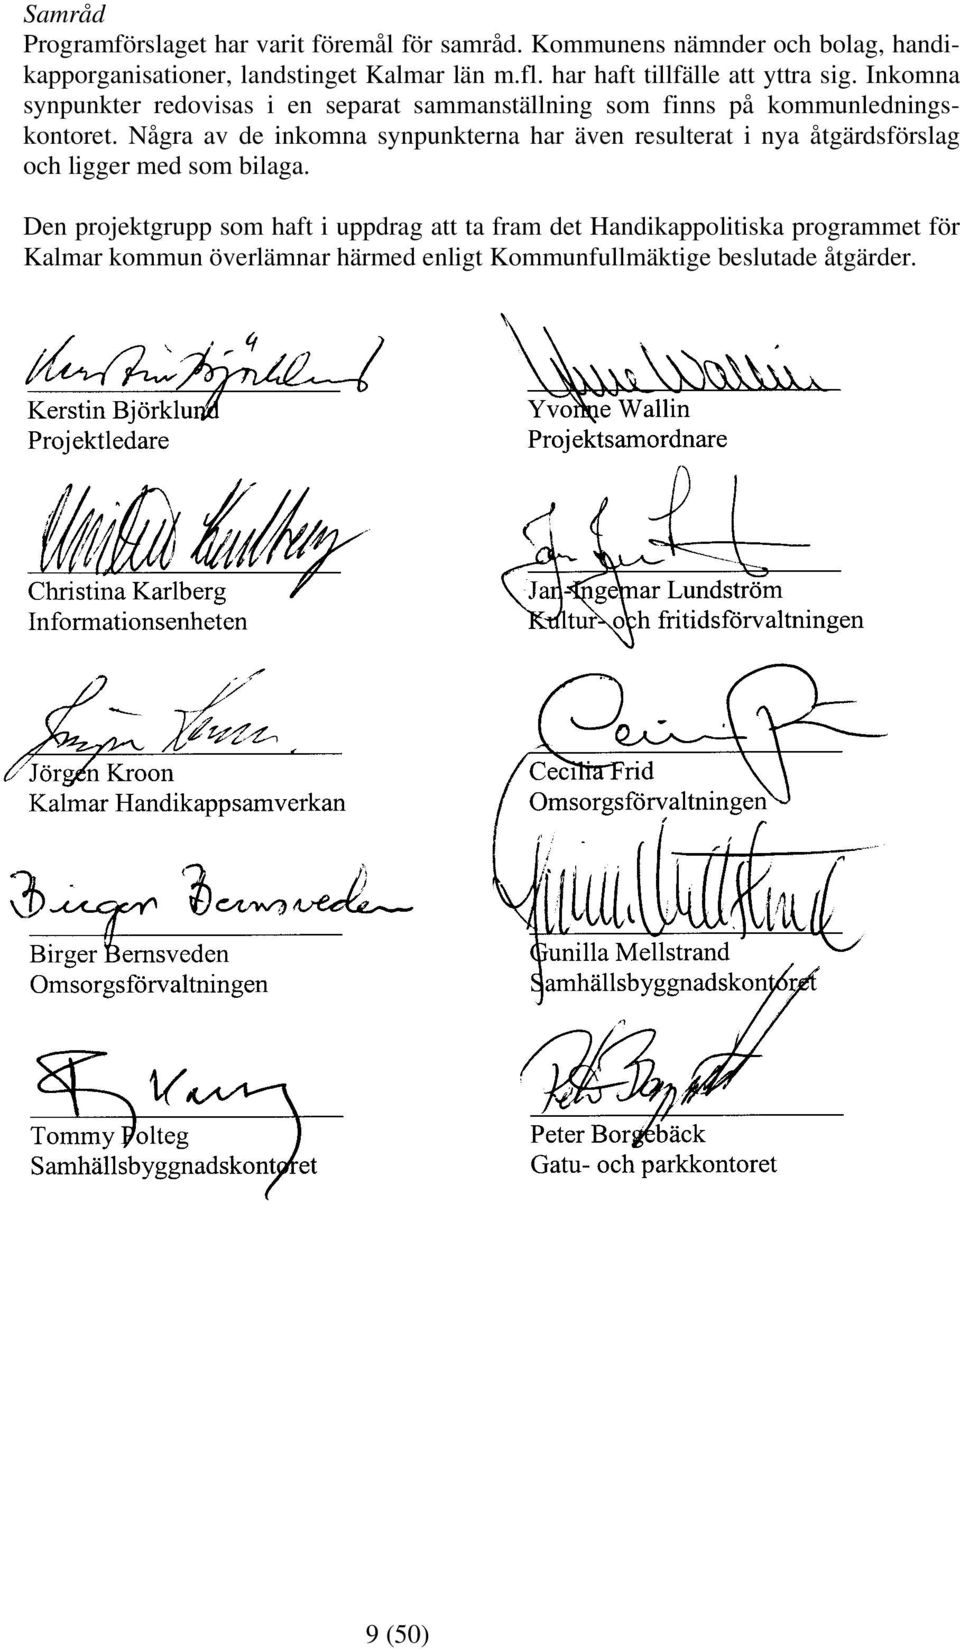 Samråd
Programförslaget har varit föremål för samråd. Kommunens nämnder och bolag, handi-
kapporganisationer, landstinget Kalmar län m.fl. har haft tillfälle att yttra sig. Inkomna
synpunkter redovisas i en separat sammanställning som finns på kommunlednings-
kontoret. Några av de inkomna synpunkterna har även resulterat i nya åtgärdsförslag
och ligger med som bilaga.
Den projektgrupp som haft i uppdrag att ta fram det Handikappolitiska programmet för
Kalmar kommun överlämnar härmed enligt Kommunfullmäktige beslutade åtgärder.
Kerstin Björklund
Yvonne Wallin
Kerstin Björklund
Yvonne Wallin
Projektledare
Projektsamordnare
Christina Karlberg
Christina Karlberg
Jan-Ingemar Lundström
Informationsenheten
Kultur- och fritidsförvaltningen
Jörgen Kroon
Cecilia Frid
Kalmar Handikappsamverkan
Omsorgsförvaltningen
Birger Bernsveden
Gunilla Mellstrand
Birger Bernsveden
Gunilla Mellstrand
Omsorgsförvaltningen
Samhällsbyggnadskontoret
Tommy Polteg
Peter Borgebäck
Samhällsbyggnadskontoret
Gatu- och parkkontoret
9 (50)